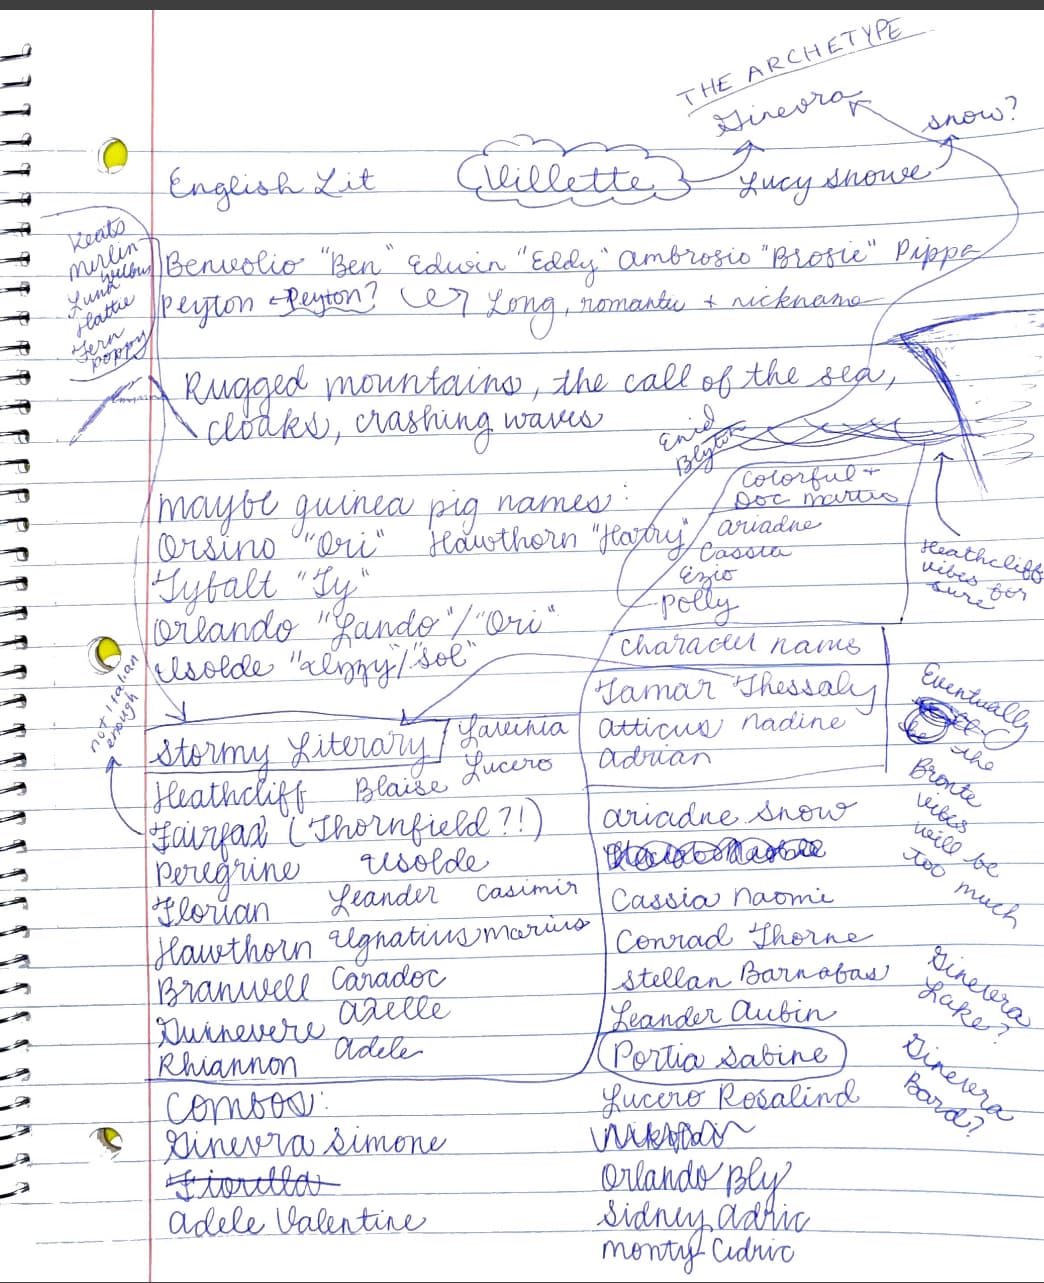 THE ARCHETYPE
Ginevra
snow?
English Lit
Villette
Lucy Snowe
Keats
Merlin
Wilbur
Luna
Hattie
Fern
Poppy
Benvolio "Ben" Edwin "Eddy" Ambrosio "Brosie" Pippa
Peyton Peyton? Long, romantic + nickname
Rugged mountains, the call of the sea,
cloaks, crashing waves
Enid
Blyton
Colorful +
Doc Martens
maybe guinea pig names:
Orsino "Ori" Hawthorn "Harry"
Tybalt "Ty"
Orlando "Lando"/"Ori"
Isolde "Izzy"/"Sol"
Ariadne
Cassia
Ezio
Polly
Heathcliff
vibes for
sure
not Italian
enough
character name
Tamar Thessaly
Atticus Nadine
Adrian
Stormy Literary
Lavinia
Lucero
Heathcliff Blaise
Fairfax (Thornfield?!)
Peregrine Isolde
Florian Leander Casimir
Hawthorn Ignatius Marius
Branwell Caradoc
Guinevere Axelle
Rhiannon Adele
Eventually
the
Bronte
vibes
will be
too much
Ginevra
Lake?
Ginevra
Bard?
Combos:
Ginevra Simone
Fiorella
Adele Valentine
Ariadne Snow
Cassia Naomi
Conrad Thorne
Stellan Barnabas
Leander Aubin
Portia Sabine
Lucero Rosalind
Orlando Bly
Sidney Adric
Monty Cedric